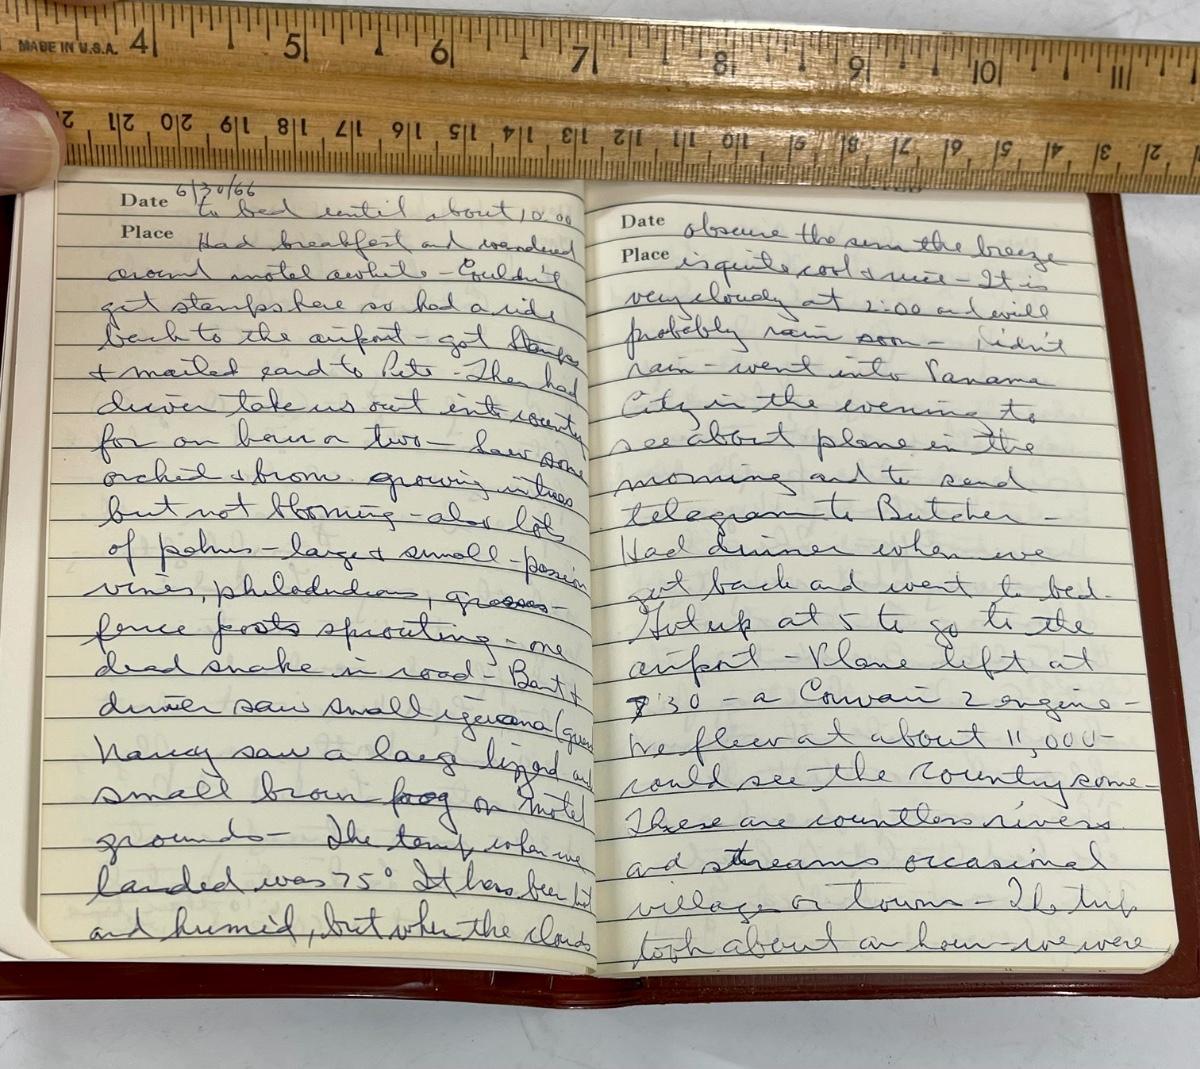 MADE IN U.S.A. 4 5 6 7 8 9 10 11
21 20 19 18 17 16 15 14 13 12 11 10 9 8 7 6 5 4 3 2
Date 6/30/66
to bed until about 10:00
Place Had breakfast and wandered
around motel awhile - Couldn't
get stamps here so had a ride
back to the airport - got stamps
& mailed card to Pete - Then had
driver take us out into country
for an hour or two - Saw some
orchid & brom. growing in trees
but not blooming - also lots
of palms - large & small - passion
vines, philodendrons, grasses -
fence posts sprouting - one
dead snake in road - Bart &
driver saw small iguana (green
Nancy saw a large lizzard and
small brown frog on motel
grounds - The temp, when we
landed was 75° It has been hot
and humid, but when the clouds
Date obscure the sun the breeze
Place is quite cool & nice - It is
very cloudy at 2:00 and will
probably rain soon - Didn't
rain - went into Panama
City in the evening to
see about plane in the
morning and to send
telegram to Butcher -
Had dinner when we
got back and went to bed.
Got up at 5 to go to the
airport - Plane left at
7:30 - a Convair 2 engine -
We flew at about 11,000 -
could see the country some -
There are countless rivers
and streams occasional
village or town - The trip
took about an hour - we were